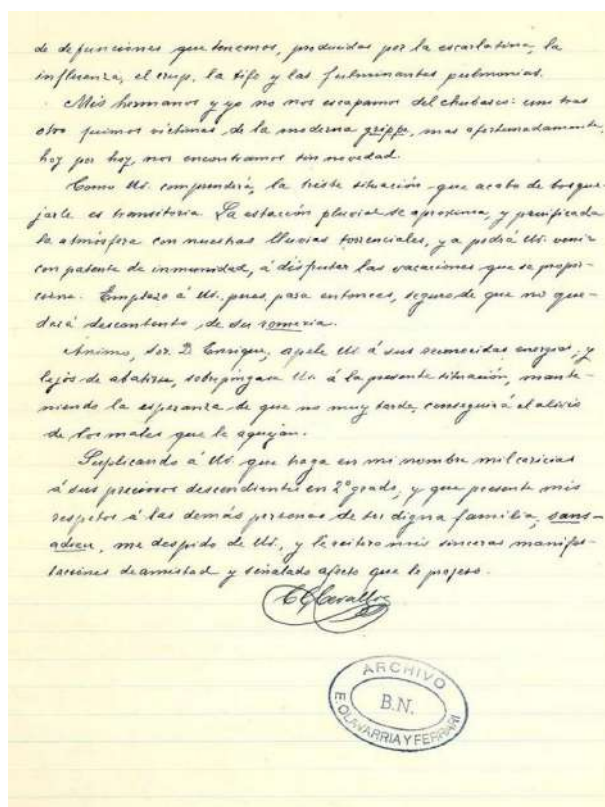 de defunciones que tenemos, producidas por la escarlatina, la
influenza, el crup, la tifo y las fulminantes pulmonías.
Mis hermanos y yo no nos escapamos del chubasco: uno tras
otro fuimos víctimas de la moderna grippe, mas afortunadamente,
hoy por hoy, nos encontramos sin novedad.
Como Ud. comprenderá, la triste situación que acabo de bosque-
jarle es transitoria. La estación pluvial se aproxima, y purificada
la atmósfera con nuestras lluvias torrenciales, ya podrá Ud. venir
con patente de inmunidad, á disfrutar las vacaciones que se propor-
cione. Emplazo á Ud. pues, para entonces, seguro de que no que-
dará descontento de su romería.
Ánimo, Sor. D. Enrique, apele Ud. á sus reconocidas energías, y
lejos de abatirse, sobrepóngase Ud. á la presente situación, mante-
niendo la esperanza de que no muy tarde, conseguirá el alivio
de los males que le aquejan.
Suplicando á Ud. que haga en mi nombre mil caricias
á sus preciosos descendientes en 2º grado, y que presente mis
respetos á las demás personas de su digna familia, sans-
adieu, me despido de Ud., y le reitero mis sinceras manifes-
taciones de amistad y señalado afecto que le profeso.
Cevallos
ARCHIVO
B.N.
E. OLAVARRIA Y FERRARI